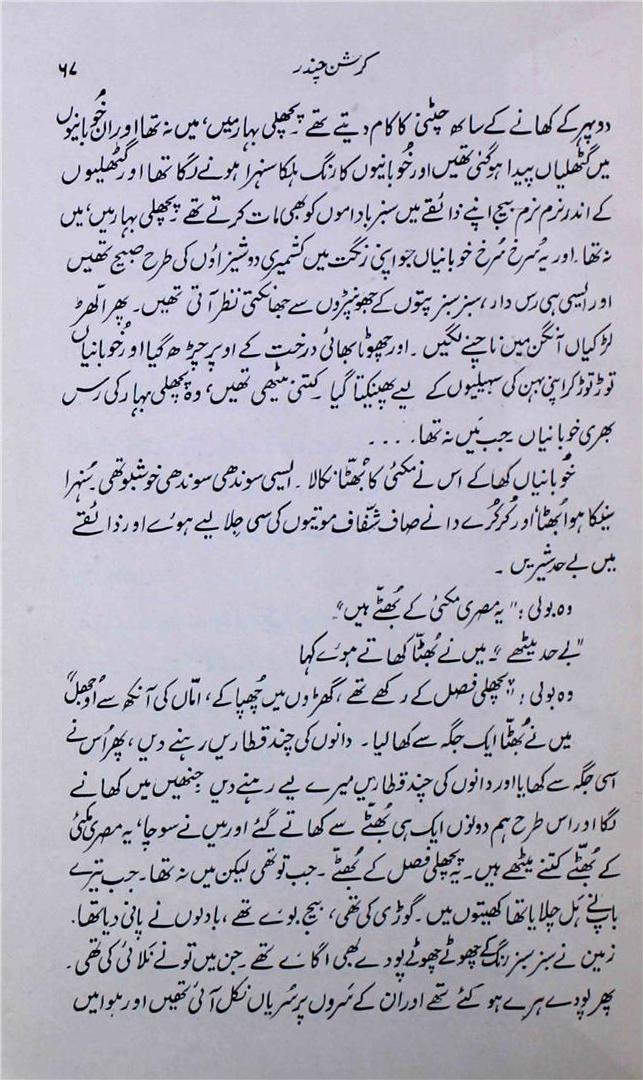 کرشن چندر
۶۷
دوپہر کے کھانے کے ساتھ چٹنی کا کام دیتے تھے ۔ پچھلی بہار میں، میں نہ تھا اور ان خُوبانیوں
میں گٹھلیاں پیدا ہو گئی تھیں اور خُوبانیوں کا رنگ ہلکا سنہرا ہونے لگا تھا اور گٹھلیوں
کے اندر نرم نرم بیج اپنے ذائقے میں سبز باداموں کو بھی مات کرتے تھے ۔ پچھلی بہار میں، میں
نہ تھا ۔ اور یہ سُرخ سُرخ خوبانیاں جو اپنی رنگت میں کشمیری دوشیزاؤں کی طرح صبیح تھیں
اور ایسی ہی رس دار ، سبز سبز پتوں کے جھونپڑوں سے جھانکتی نظر آتی تھیں ۔ پھر الھڑ
لڑکیاں آنگن میں ناچنے لگیں ۔ اور چھوٹا بھائی درخت کے اوپر چڑھ گیا اور خُوبانیاں
توڑ توڑ کر اپنی بہن کی سہیلیوں کے لیے پھینکتا گیا ۔ کتنی میٹھی تھیں، وہ پچھلی بہار کی رس
بھری خوبانیاں جب میَں نہ تھا ۔ . . .
خُوبانیاں کھا کے اس نے مکئی کا بُھٹّا نکالا ۔ ایسی سوندھی سوندھی خوشبو تھی ۔ سُنہرا
سینکا ہوا بُھٹّا، اور کُرکُرے دانے صاف شفّاف موتیوں کی سی جِلا لیے ہوۓ اور ذائقے
میں بے حد شیریں ۔
وہ بولی : "یہ مصری مکئی کے بُھٹّے ہیں"۔
"بے حد میٹھے"۔ میں نے بُھٹّا کھاتے ہوۓ کہا
وہ بولی : "پچھلی فصل کے رکھے تھے ، گھڑوں میں چُھپا کے ، امّاں کی آنکھ سے اوجھل"
میں نے بُھٹّا ایک جگہ سے کھا لیا ۔ دانوں کی چند قطاریں رہنے دیں ، پھر اُس نے
اسی جگہ سے کھایا اور دانوں کی چند قطاریں میرے لیے رہنے دیں جنھیں میں کھانے
لگا اور اس طرح ہم دونوں ایک ہی بُھٹّے سے کھاتے گئے اور میں نے سوچا، یہ مصری مکئی
کے بُھٹّے کتنے میٹھے ہیں ۔ یہ پچھلی فصل کے بُھٹّے ۔ جب تو تھی لیکن میں نہ تھا ۔ جب تیرے
باپ نے ہَل چلایا تھا کھیتوں میں ۔ گوڑی کی تھی، بیج بوۓ تھے ، بادلوں نے پانی دیا تھا ۔
زمین نے سبز سبز رنگ کے چھوٹے چھوٹے پودے بھی اگاۓ تھے ۔ جن میں تو نے نلائی کی تھی ۔
پھر پودے ہرے ہو گئے تھے اور ان کے سَروں پر سُریاں نکل آئی تھیں اور ہوا میں